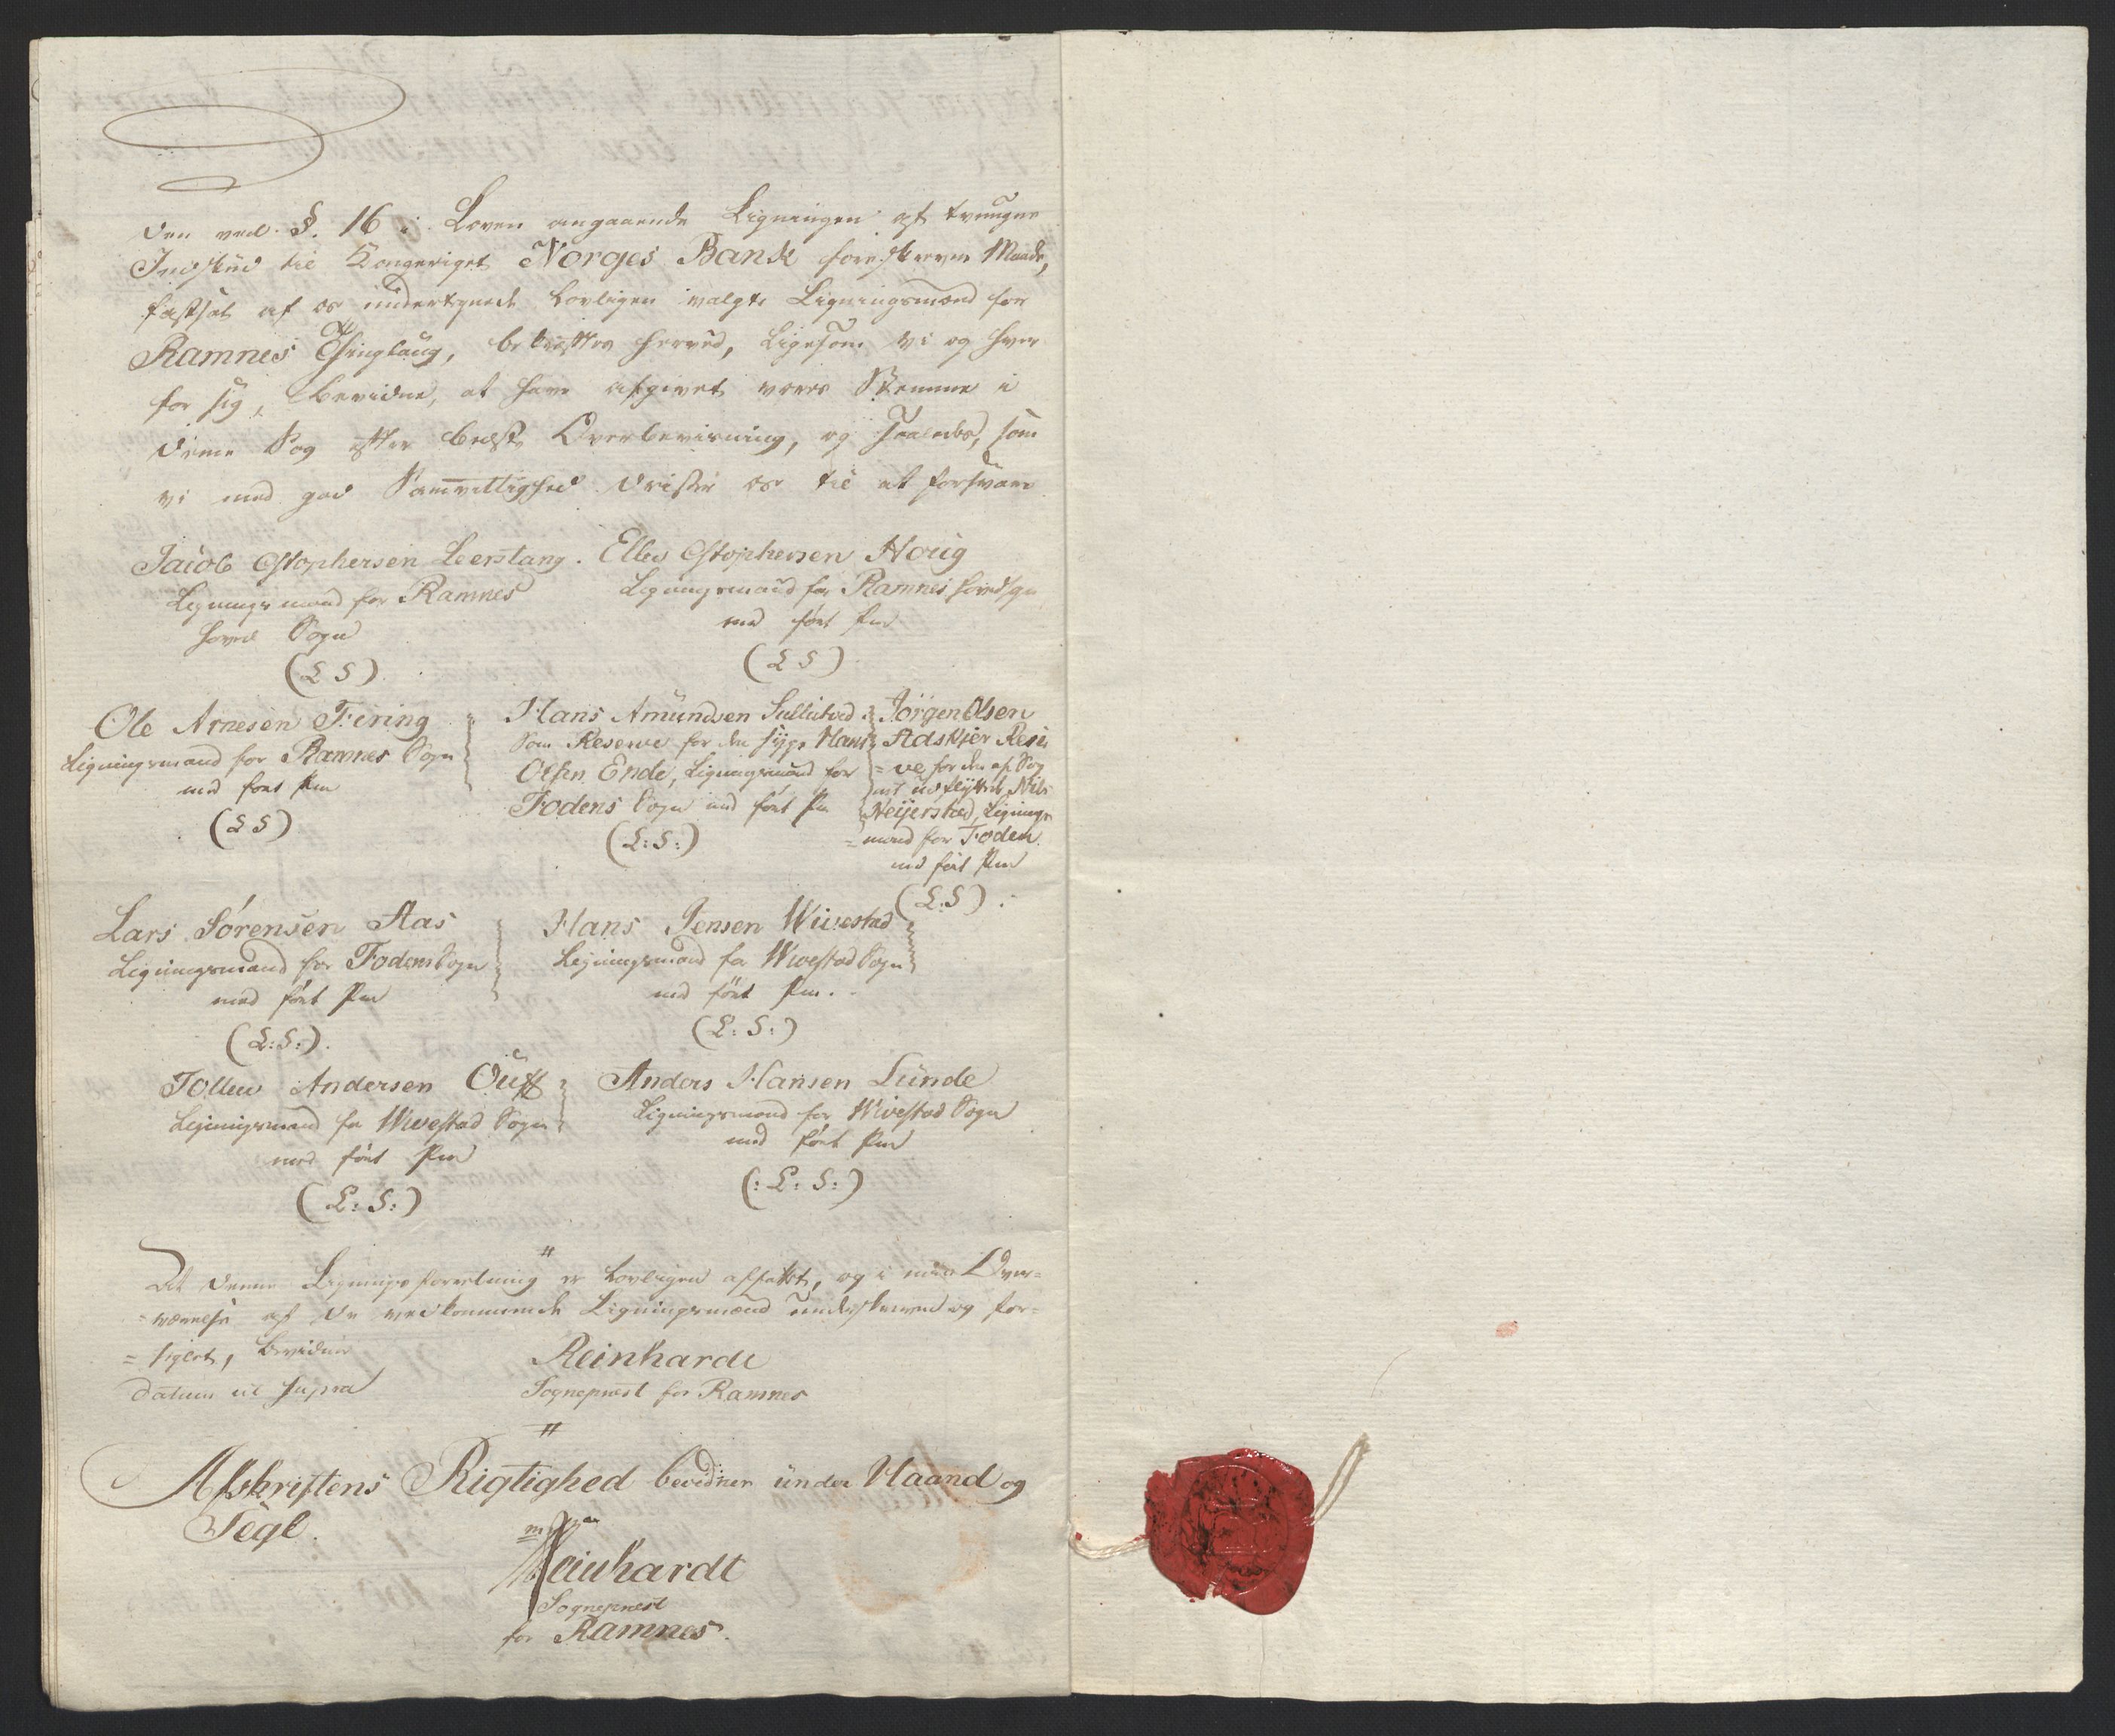 den ved §. 16 i Loven angaaende Ligningen af tvungne
Indskud til Kongeriget Norges Bank foreskrevne Maade,
fastsat af os undertegnede lovligen valgte Ligningsmænd for
Ramnes Thinglaug, bekræftes herved, ligesom vi og hver
for sig, bevidne, at have afgivet vores Stemme i
denne Sag efter bedste Overbeviisning, og saaledes, som
vi med god Samvittighed drister os til at forsvare
Jacob Chstophersen Leerstang. Ellev Chstophersen Houg
Ligningsmand for Ramnes Ligningsmand for Ramnes Hovedsogn
Hoved Sogn med ført Pen
(L S) (L S)
Ole Arnesen Fering
Ligningsmand for Ramnes Sogn
med ført Pen
(L S)
Hans Amundsen
Som Reserve for den syge Hans
Olsen Ende, Ligningsmand for
Fodens Sogn med ført Pen
(L: S:)
Jörgen Olsen
Adskjer Reser
= ve for den af Sog
net udflyttede Nils
Heijerstad, Lignings
= mand for Foden
med ført Pen
(L. S)
Lars Sørensen Aas
Ligningsmand for Fodens Sogn
med ført Pen
(L: S:).
Hans Jensen Wivestad
Ligningsmand for Wivestad Sogn
med ført Pen.
(L: S:)
Tollev Andersen
Ligningsmand for Wivestad Sogn
med ført Pen
(L: S:)
Anders Hansen Lunde
Ligningsmand for Wivestad Sogn
med ført Pen
(: L: S:)
At denne Ligningsforretning er lovligen affattet, og i min Over=
= værelse af de vedkommende Ligningsmænd underskreven og for=
= siglet, bevidner
Reinhardt
Datum ut supra Sogneprest for Ramnes
Afskriftens Rigtighed bevidner under Haand og
Segl.
Reinhardt
Sogneprest
for Ramnes.